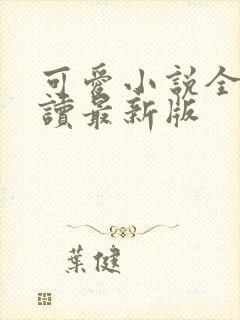 可愛小說全
讀最新版
葉健